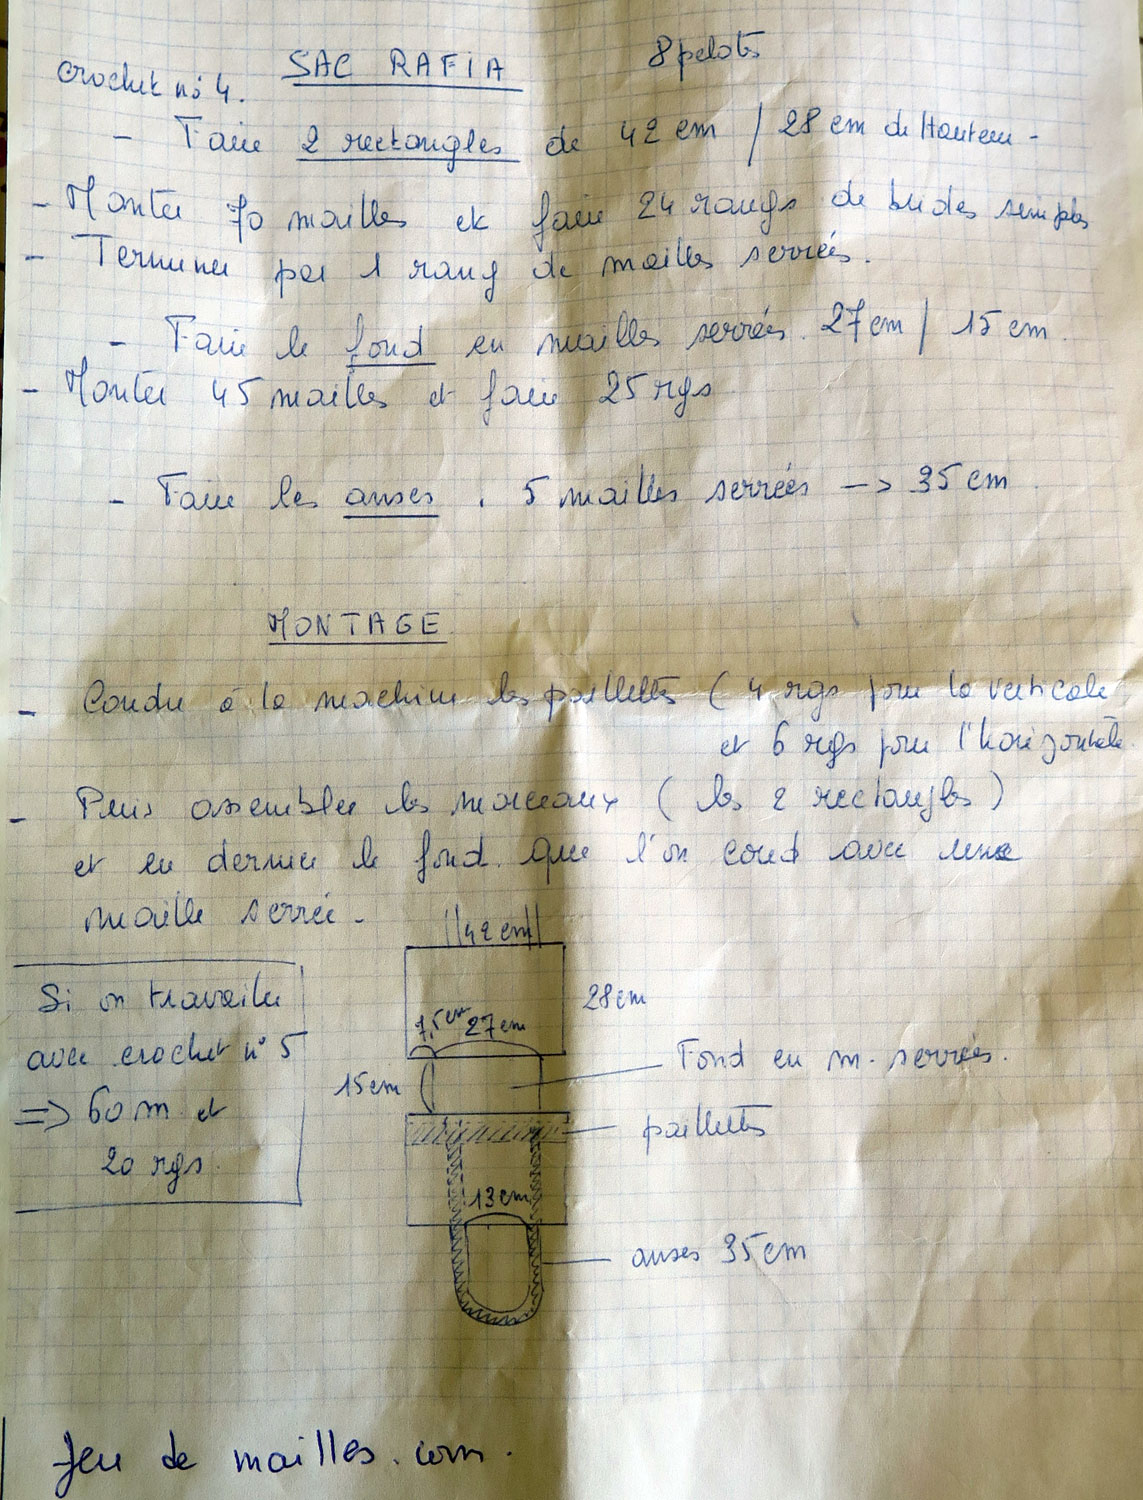 SAC RAFIA 8 pelotes
Crochet n° 4.
- Faire 2 rectangles de 42 cm / 28 cm de Hauteur -
- Monter 70 mailles et faire 24 rangs de brides simples
- Terminer par 1 rang de mailles serrées.
- Faire le fond en mailles serrées. 27 cm / 15 cm.
- Monter 45 mailles et faire 25 rgs
- Faire les anses. 5 mailles serrées -> 35 cm.
MONTAGE
- Coudre à la machine les paillettes ( 4 rgs pour la verticale
et 6 rgs pour l'horizontale
- Puis assembler les morceaux ( les 2 rectangles )
et en dernier le fond que l'on coud avec une
maille serrée -
42 cm
28 cm
7,5 cm 27 cm
15 cm
Fond en m. serrées.
paillettes
13 cm
anses 35 cm
Si on travaille
avec crochet n° 5
=> 60 m et
20 rgs.
Jeu de mailles.com.